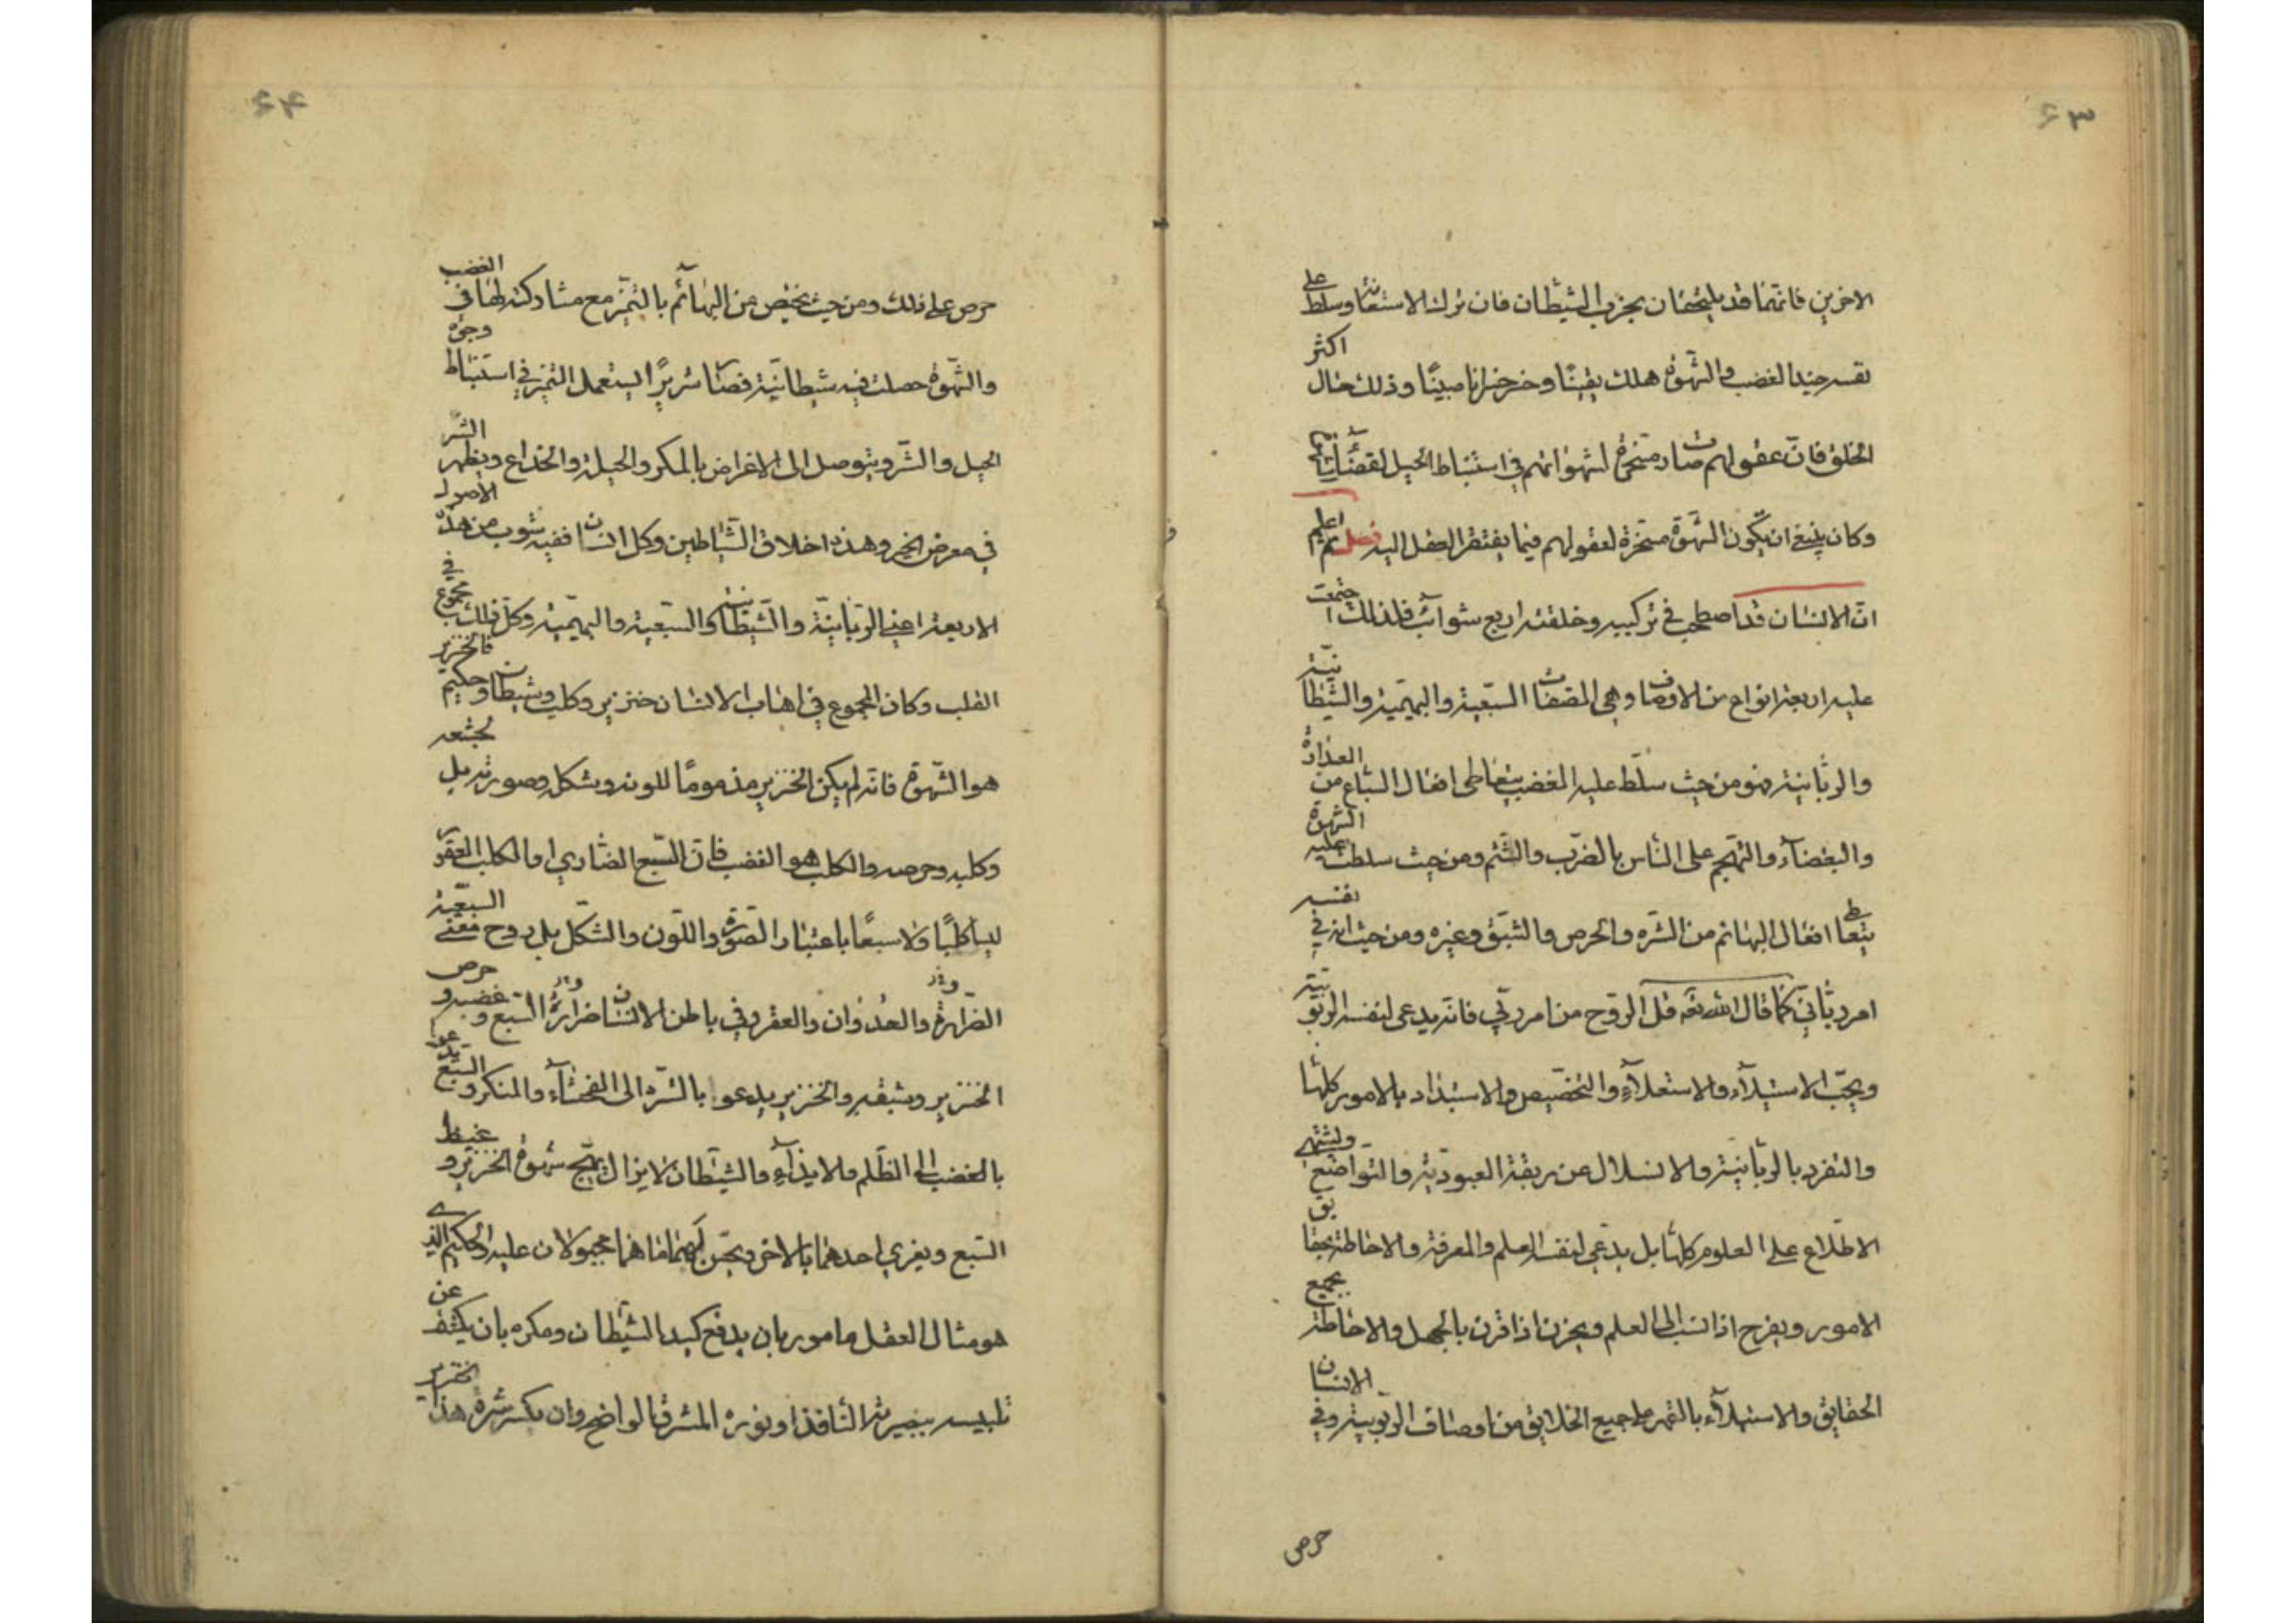 ٦٣
الاخرين فانهما قد يلتحقان بحزب الشيطان فان ترك الاستعانة وسلط على
نفسه جند الغضب والشهوة هلك يقينا وخسر خسرانا مبينا وذلك حال اكثر
الخلق فان عقولهم صارت مسخرة لشهواتهم في استنباط الحيل لقضاء
وكان ينبغي ان يكون الشهوة مسخرة لعقولهم فيما يفتقر العقل اليه فصل اعلم
ان الانسان قد اصطحب في تركيبه وخلقته اربع شوائب فلذلك اجتمعت
عليه اربعة انواع من الاوصاف وهي الصفات السبعية والبهيمية والشيطانية
والربانية فهو من حيث سلط عليه الغضب يتعاطى افعال السباع من العداوة
والبغضاء والتهجم على الناس بالضرب والشتم ومن حيث سلطت عليه الشهوة
يتعاطى افعال البهائم من الشره والحرص والشبق وغيره ومن حيث انه في نفسه
امر رباني كما قال الله تعه قل الروح من امر ربي فانه يدعى لنفسه الربوبية
ويحب الاستيلاء والاستعلاء والتخصيص والاستبداد بالامور كلها
والتفرد بالربانية والانسلال عن ربقة العبودية والتواضع ويشتهي
الاطلاع على العلوم كلها بل يدعى لنفسه العلم والمعرفة والاحاطة بحقايق
الامور ويفرح اذا نسب الى العلم ويحزن اذا قرن بالجهل والاحاطة بجميع
الحقايق والاستيلاء بالقهر على جميع الخلايق من اوصاف الربوبية وفي الانسان
حرص
٦٤
حرص على ذلك ومن حيث يختص من البهائم بالتميز مع مشاركته لها في الغضب
والشهوة حصلت فيه شيطانية فصار شريرا يستعمل التميز في استنباط وجوه
الحيل والشر ويتوصل الى الاغراض بالمكر والحيلة والخداع ويظهر الشر
في معرض الخير وهذه اخلاق الشياطين وكل انسان ففيه شوب من هذه الاصول
الاربعة اعني الربانية والشيطانية والسبعية والبهيمية وكل ذلك مجموع في
القلب وكان المجموع في اهاب الانسان خنزير وكلب وشيطان وحكيم فالخنزير
هو الشهوة فانه لم يكن الخنزير مذموما للونه وشكله وصورته بل لجشعه
وكلبه وحرصه والكلب هو الغضب فان السبع الضاري او الكلب العقور
ليس كلبا ولا سبعا باعتبار الصورة واللون والشكل بل روح معنى السبعية
الضراوة والعدوان والعقر وفي باطن الانسان ضراوة السبع وغضبه وحرص
الخنزير وشبقه والخنزير يدعوا بالشره الى الفحشاء والمنكر والسبع يدعو
بالغضب الى الظلم والايذاء والشيطان لا يزال يهيج شهوة الخنزير وغيظ
السبع ويغري احدهما بالاخر ويحسن لهما ما هما مجبولان عليه والحكيم الذي
هو مثال العقل مامور بان يدفع كيد الشيطان ومكره بان يكشف عن
تلبيسه ببصيرته النافذة ونوره المشرق الواضح وان يكسر شره هذا الخنزير